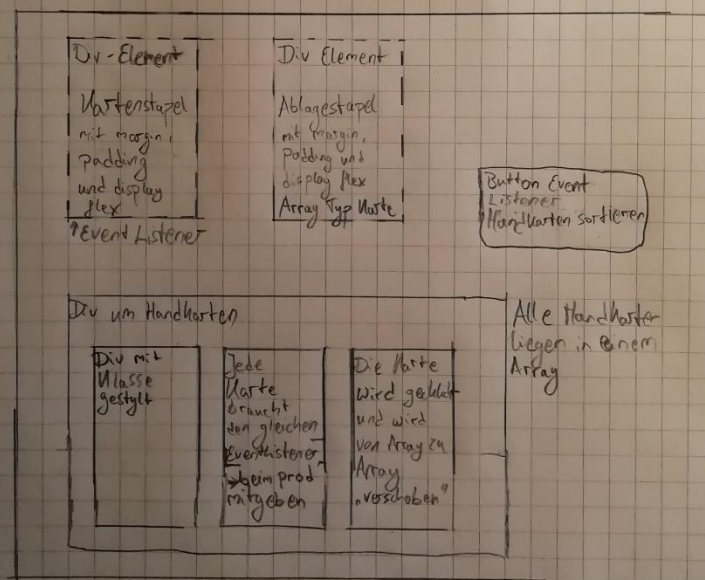 Div-Element
Kartenstapel
mit margin,
padding
und display
flex
↑Event Listener
Div Element
Ablagestapel
mit margin,
Padding und
display flex
Array Typ Karte
Button Event
Listener
Handkarten sortieren
Div um Handkarten
Div mit
Klasse
gestylt
Jede
Karte
braucht
den gleichen
Eventlistener
→beim prod
mitgeben
Die Karte
wird geklickt
und wird
von Array zu
Array
„verschoben“
Alle Handkarten
liegen in einem
Array